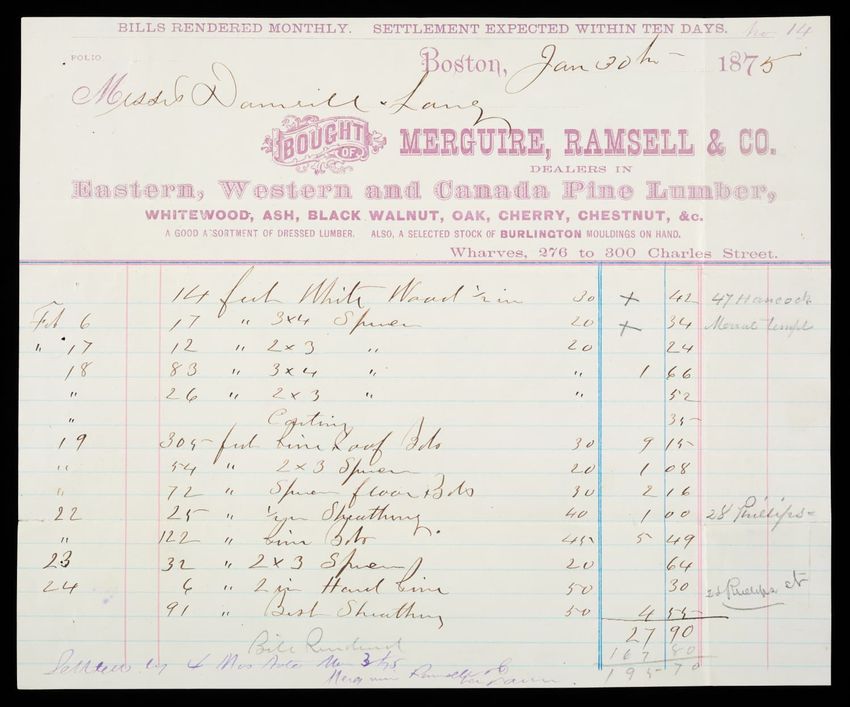 BILLS RENDERED MONTHLY. SETTLEMENT EXPECTED WITHIN TEN DAYS. No 14
FOLIO
Boston, Jan 30th 1875
Messrs & Lang
BOUGHT OF MERGUIRE, RAMSELL & CO.
DEALERS IN
Eastern, Western and Canada Pine Lumber,
WHITEWOOD, ASH, BLACK WALNUT, OAK, CHERRY, CHESTNUT, &c.
A GOOD ASSORTMENT OF DRESSED LUMBER. ALSO, A SELECTED STOCK OF BURLINGTON MOULDINGS ON HAND.
Wharves, 276 to 300 Charles Street.
14 feet White Wood ½ in 30 + 42 47 Hancock
Feb 6 17 " 3x4 Spruce 20 + 34 Templ
" 17 12 " 2x3 " 20 24
18 83 " 3x4 " " 1 66
" 26 " 2x3 " " 52
" 35
19 305 feet Pine Roof Bds 30 9 15
" 54 " 2x3 Spruce 20 1 08
" 72 " Spruce floor Bds 30 2 16
22 25 " ½ in Sheathing 40 1 00 28 Phillips
" 122 " Pine Bds 45 5 49
23 32 " 2x3 Spruce 20 64
24 6 " 2 in Hard Pine 50 30 28 Phillips st
91 " Best Sheathing 50 4 55
27 90
Bill Rendered 167 80
195 70
Settled by 4 Mos Note Mar 3/75
Merguire Ramsell & Co